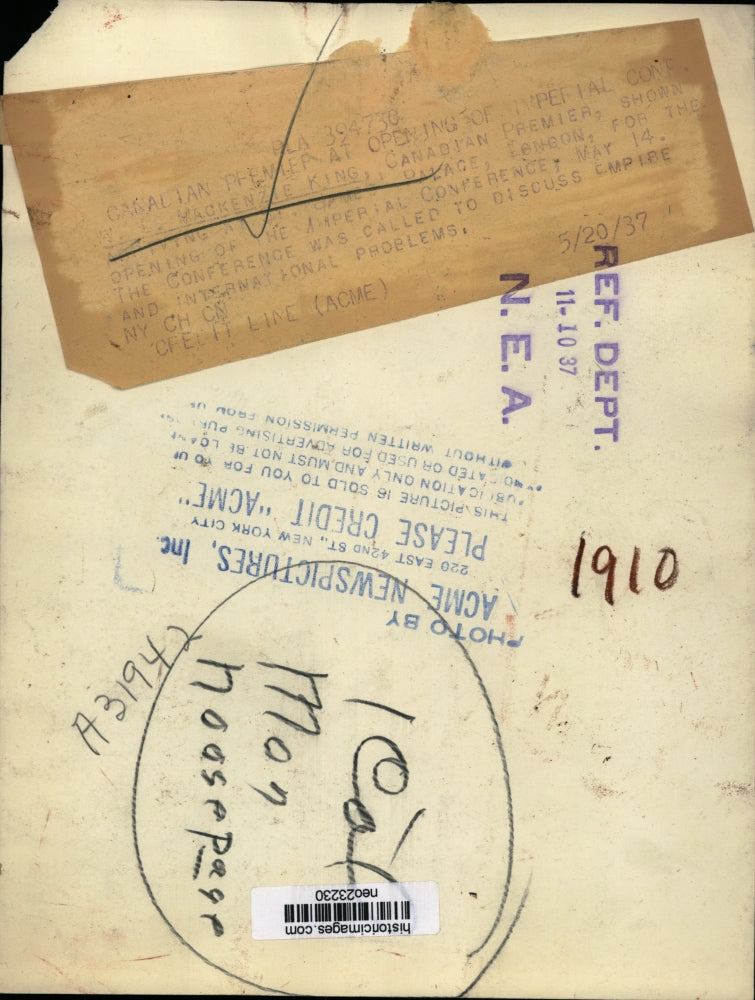 PLA 394730
CANADIAN PREMIER AT OPENING OF IMPERIAL CONF.
MACKENZIE KING, CANADIAN PREMIER, SHOWN
PALACE, LONDON, FOR THE
OPENING OF THE IMPERIAL CONFERENCE, MAY 14.
THE CONFERENCE WAS CALLED TO DISCUSS EMPIRE
AND INTERNATIONAL PROBLEMS.
NY CH CN 5/20/37
CREDIT LINE (ACME)
REF. DEPT.
11-10 37
N. E. A.
PHOTO BY
ACME NEWSPICTURES, Inc.
220 EAST 42ND ST., NEW YORK CITY
PLEASE CREDIT "ACME"
THIS PICTURE IS SOLD TO YOU FOR
PUBLICATION ONLY AND MUST NOT BE
OR USED FOR ADVERTISING
WITHOUT WRITTEN PERMISSION FROM
1910
A31942
1 Col
Mon
historicimages.com
neo23230